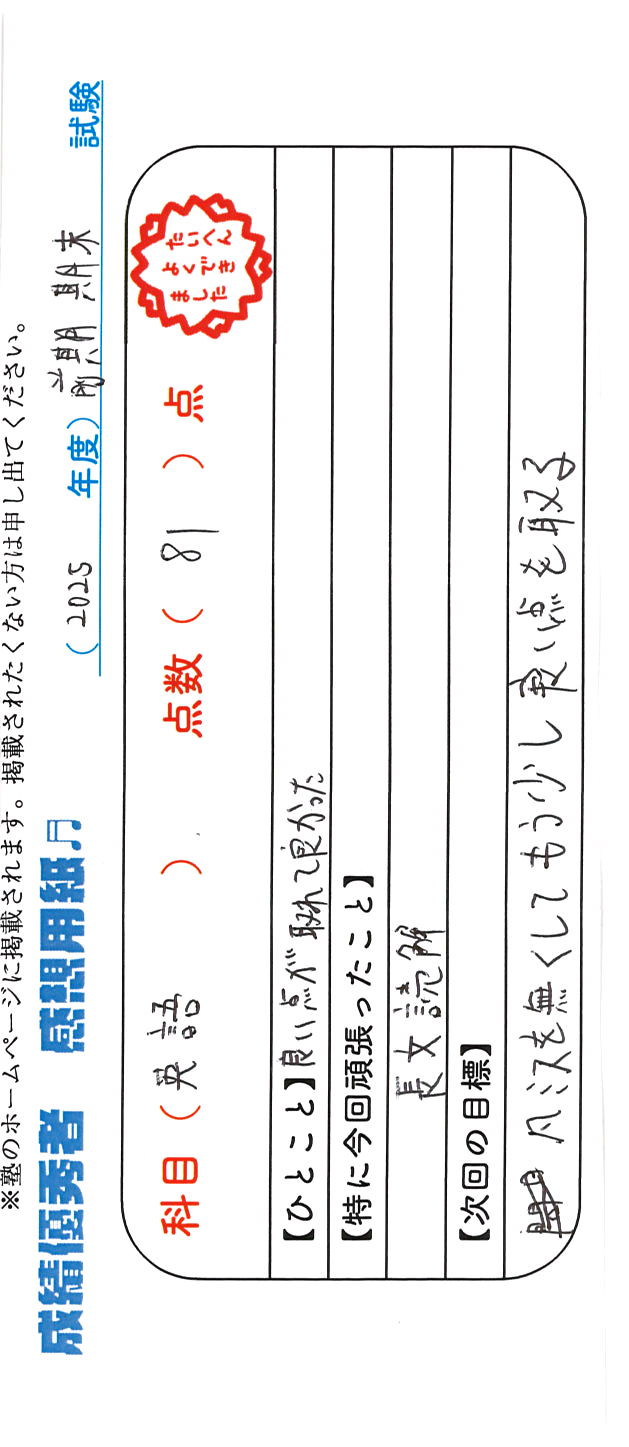 ※塾のホームページに掲載されます。掲載されたくない方は申し出てください。
成績優秀者 感想用紙♬ (2025 年度) 前期期末 試験
科目(英語) 点数(81)点
たいへん
よくでき
ました
【ひとこと】良い点が取れて良かった
【特に今回頑張ったこと】
長文読解
【次回の目標】
凡ミスを無くしてもう少し良い点を取る